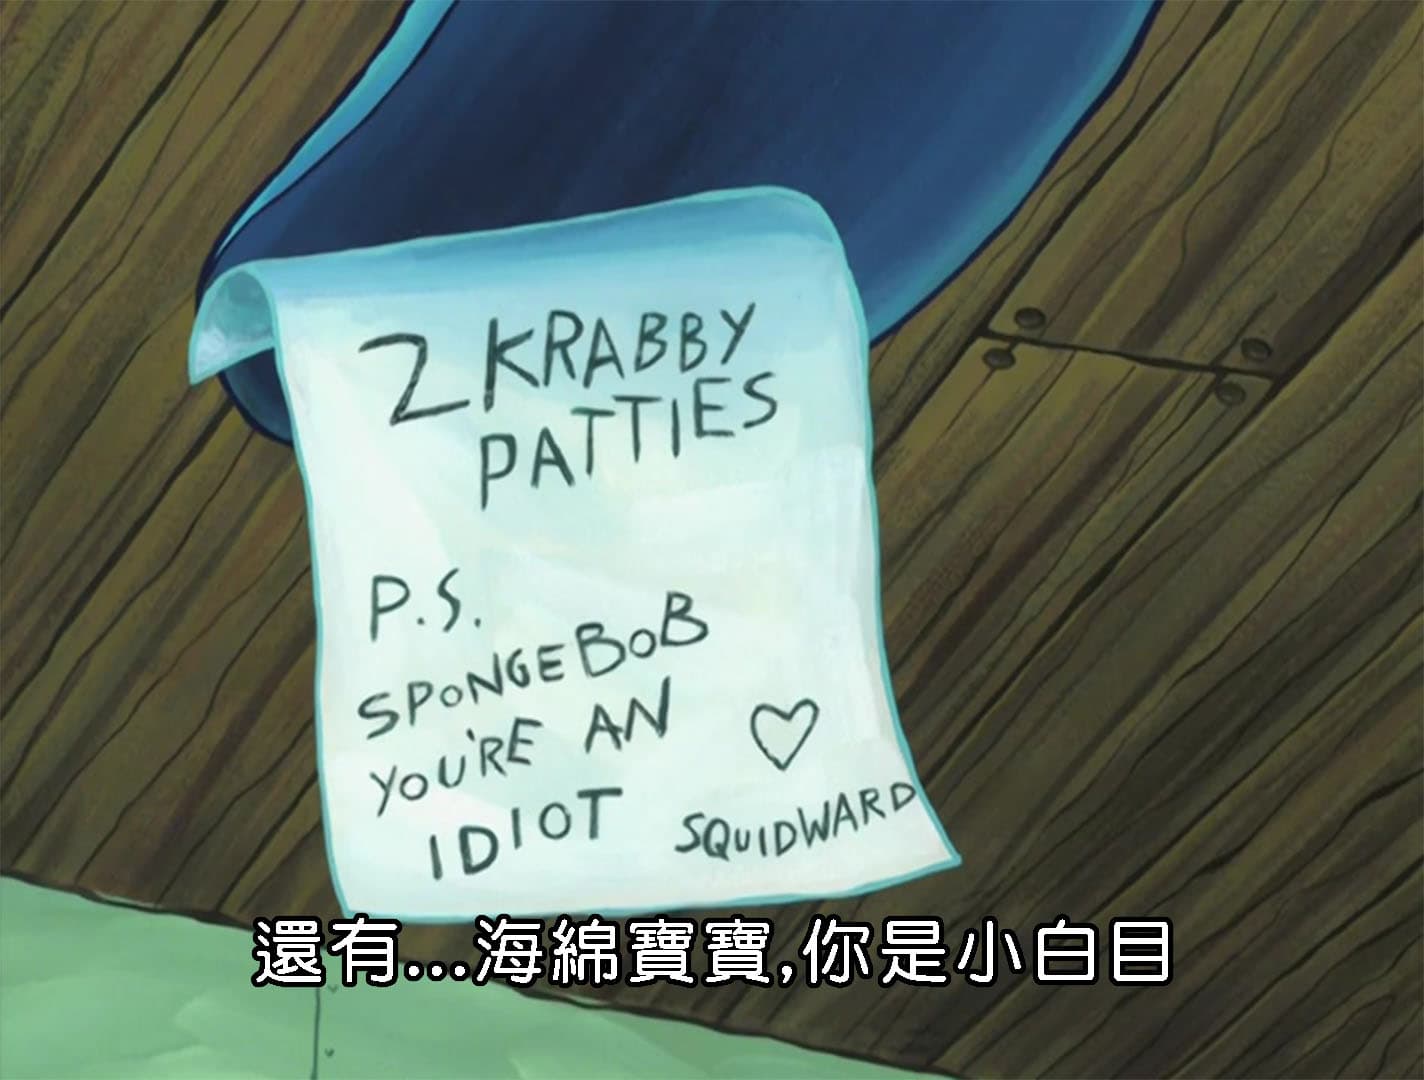 2 KRABBY
PATTIES
P.S.
SPONGEBOB
YOU'RE AN
IDIOT
♡
SQUIDWARD
還有...海綿寶寶,你是小白目